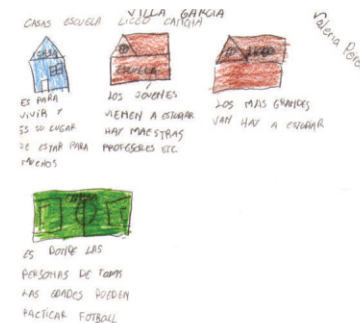 VILLA GARCIA
CASAS ESCUELA LICEO CANCHA
Valeria Pérez
CASA
ESCUELA
LICEO
ES PARA
VIVIR Y
ES SU LUGAR
DE ESTAR PARA
MUCHOS
LOS JÓVENES
VIEMEN A ESTUDIAR
HAY MAESTRAS
PROFESORES ETC.
LOS MAS GRANDES
VAN HAY A ESTUDIAR
ES DONDE LAS
PERSONAS DE TODAS
LAS EDADES PUEDEN
PACTICAR FOTBALL